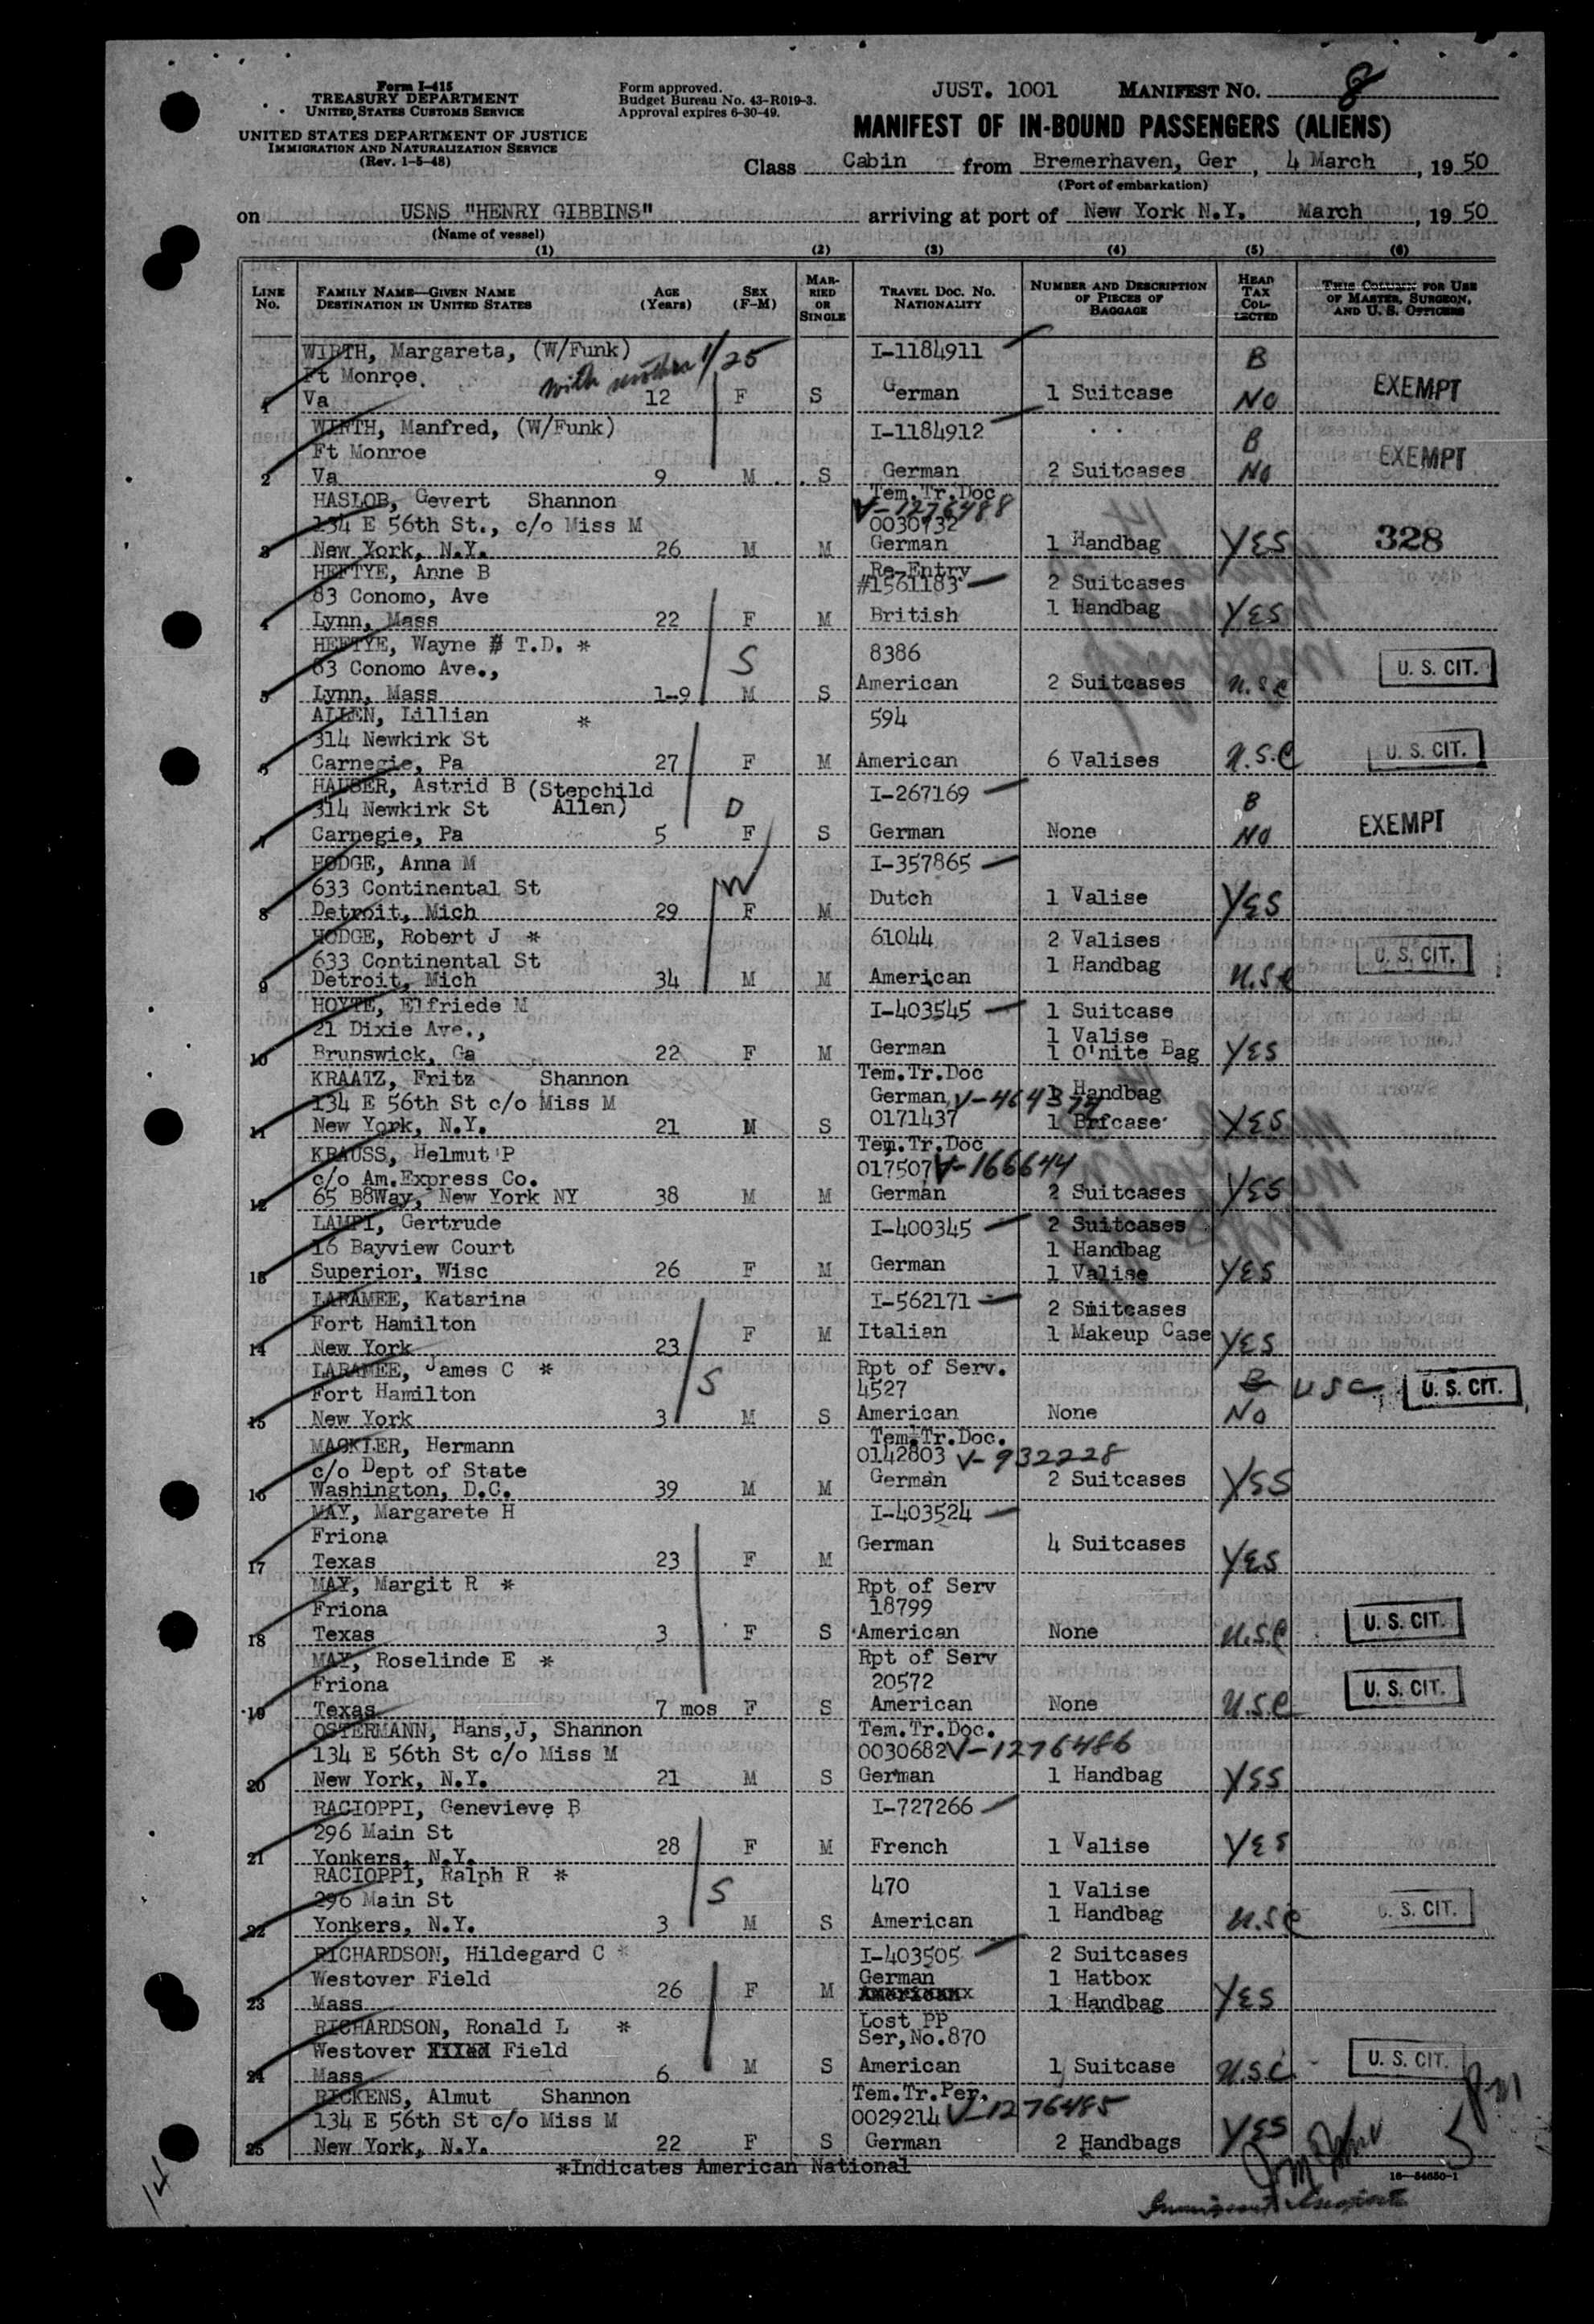 Form I-415
TREASURY DEPARTMENT
UNITED STATES CUSTOMS SERVICE
UNITED STATES DEPARTMENT OF JUSTICE
IMMIGRATION AND NATURALIZATION SERVICE
(Rev. 1-5-48)
Form approved.
Budget Bureau No. 43-R019-3.
Approval expires 6-30-49.
JUST. 1001 MANIFEST NO. 8
MANIFEST OF IN-BOUND PASSENGERS (ALIENS)
Class Cabin from Bremerhaven, Ger, 4 March, 19 50
(Port of embarkation)
on USNS "HENRY GIBBINS" arriving at port of New York N.Y. March, 19 50
(Name of vessel)
(1) (2) (3) (4) (5) (6)
LINE No. FAMILY NAME—GIVEN NAME DESTINATION IN UNITED STATES AGE (Years) SEX (F-M) MARRIED OR SINGLE TRAVEL DOC. NO. NATIONALITY NUMBER AND DESCRIPTION OF PIECES OF BAGGAGE HEAD TAX COLLECTED THIS COLUMN FOR USE OF MASTER, SURGEON, AND U. S. OFFICERS
WIRTH, Margareta, (W/Funk) I-1184911 B
Ft Monroe with mother 1/25
1 Va 12 F S German 1 Suitcase NO EXEMPT
WIRTH, Manfred, (W/Funk) I-1184912 B
Ft Monroe EXEMPT
2 Va 9 M S German 2 Suitcases NO
HASLOB, Gevert Shannon Tem.Tr.Doc V-1276488
134 E 56th St., c/o Miss M 0030732
3 New York, N.Y. 26 M M German 1 Handbag YES 328
HEFTYE, Anne B Re-Entry
83 Conomo, Ave #1561183 2 Suitcases
4 Lynn, Mass 22 F M British 1 Handbag YES
HEFTYE, Wayne T.D. * 8386
83 Conomo Ave., S
5 Lynn, Mass 1-9 M S American 2 Suitcases U.S.C U. S. CIT.
ALLEN, Lillian * 594
314 Newkirk St
6 Carnegie, Pa 27 F M American 6 Valises U.S.C U. S. CIT.
HAUSER, Astrid B (Stepchild I-267169 B
314 Newkirk St Allen) D
7 Carnegie, Pa 5 F S German None NO EXEMPT
HODGE, Anna M I-357865
633 Continental St W
8 Detroit, Mich 29 F M Dutch 1 Valise YES
HODGE, Robert J * 61044 2 Valises
633 Continental St 1 Handbag
9 Detroit, Mich 34 M M American U.S.C U. S. CIT.
HOYTE, Elfriede M I-403545 1 Suitcase
21 Dixie Ave., 1 Valise
10 Brunswick, Ga 22 F M German 1 O'nite Bag YES
KRAATZ, Fritz Shannon Tem.Tr.Doc
134 E 56th St c/o Miss M German V-464374 1 Handbag
11 New York, N.Y. 21 M S 0171437 1 Brfcase YES
KRAUSS, Helmut P Tem.Tr.Doc
c/o Am.Express Co. 017507 V-166644
12 65 B8Way, New York NY 38 M M German 2 Suitcases YES
LAMPI, Gertrude I-400345 2 Suitcases
16 Bayview Court 1 Handbag
13 Superior, Wisc 26 F M German 1 Valise YES
LARAMEE, Katarina I-562171 2 Suitcases
Fort Hamilton F M Italian 1 Makeup Case
14 New York 23 YES
LARAMEE, James C * Rpt of Serv. B USC
Fort Hamilton S 4527 U. S. CIT.
15 New York 3 M S American None NO
MACKLER, Hermann Tem.Tr.Doc.
c/o Dept of State 0142803 V-932228
16 Washington, D.C. 39 M M German 2 Suitcases YES
MAY, Margarete H I-403524
Friona German 4 Suitcases
17 Texas 23 F M YES
MAY, Margit R * Rpt of Serv
Friona 18799
18 Texas 3 F S American None U.S.C U. S. CIT.
MAY, Roselinde E * Rpt of Serv
Friona 20572
19 Texas 7 mos F S American None U.S.C U. S. CIT.
OSTERMANN, Hans,J, Shannon Tem.Tr.Doc.
134 E 56th St c/o Miss M 0030682 V-1276486
20 New York, N.Y. 21 M S German 1 Handbag YES
RACIOPPI, Genevieve B I-727266
296 Main St
21 Yonkers, N.Y. 28 F M French 1 Valise YES
RACIOPPI, Ralph R * 470 1 Valise
296 Main St S 1 Handbag
22 Yonkers, N.Y. 3 M S American U.S.C U. S. CIT.
RICHARDSON, Hildegard C * I-403505 2 Suitcases
Westover Field German 1 Hatbox
23 Mass 26 F M 1 Handbag YES
RICHARDSON, Ronald L * Lost PP
Westover Field Ser,No.870
24 Mass 6 M S American 1 Suitcase U.S.C U. S. CIT.
RICKENS, Almut Shannon Tem.Tr.Per.
134 E 56th St c/o Miss M 0029214 V-1276485
25 New York, N.Y. 22 F S German 2 Handbags YES
*Indicates American National
16-54650-1
14